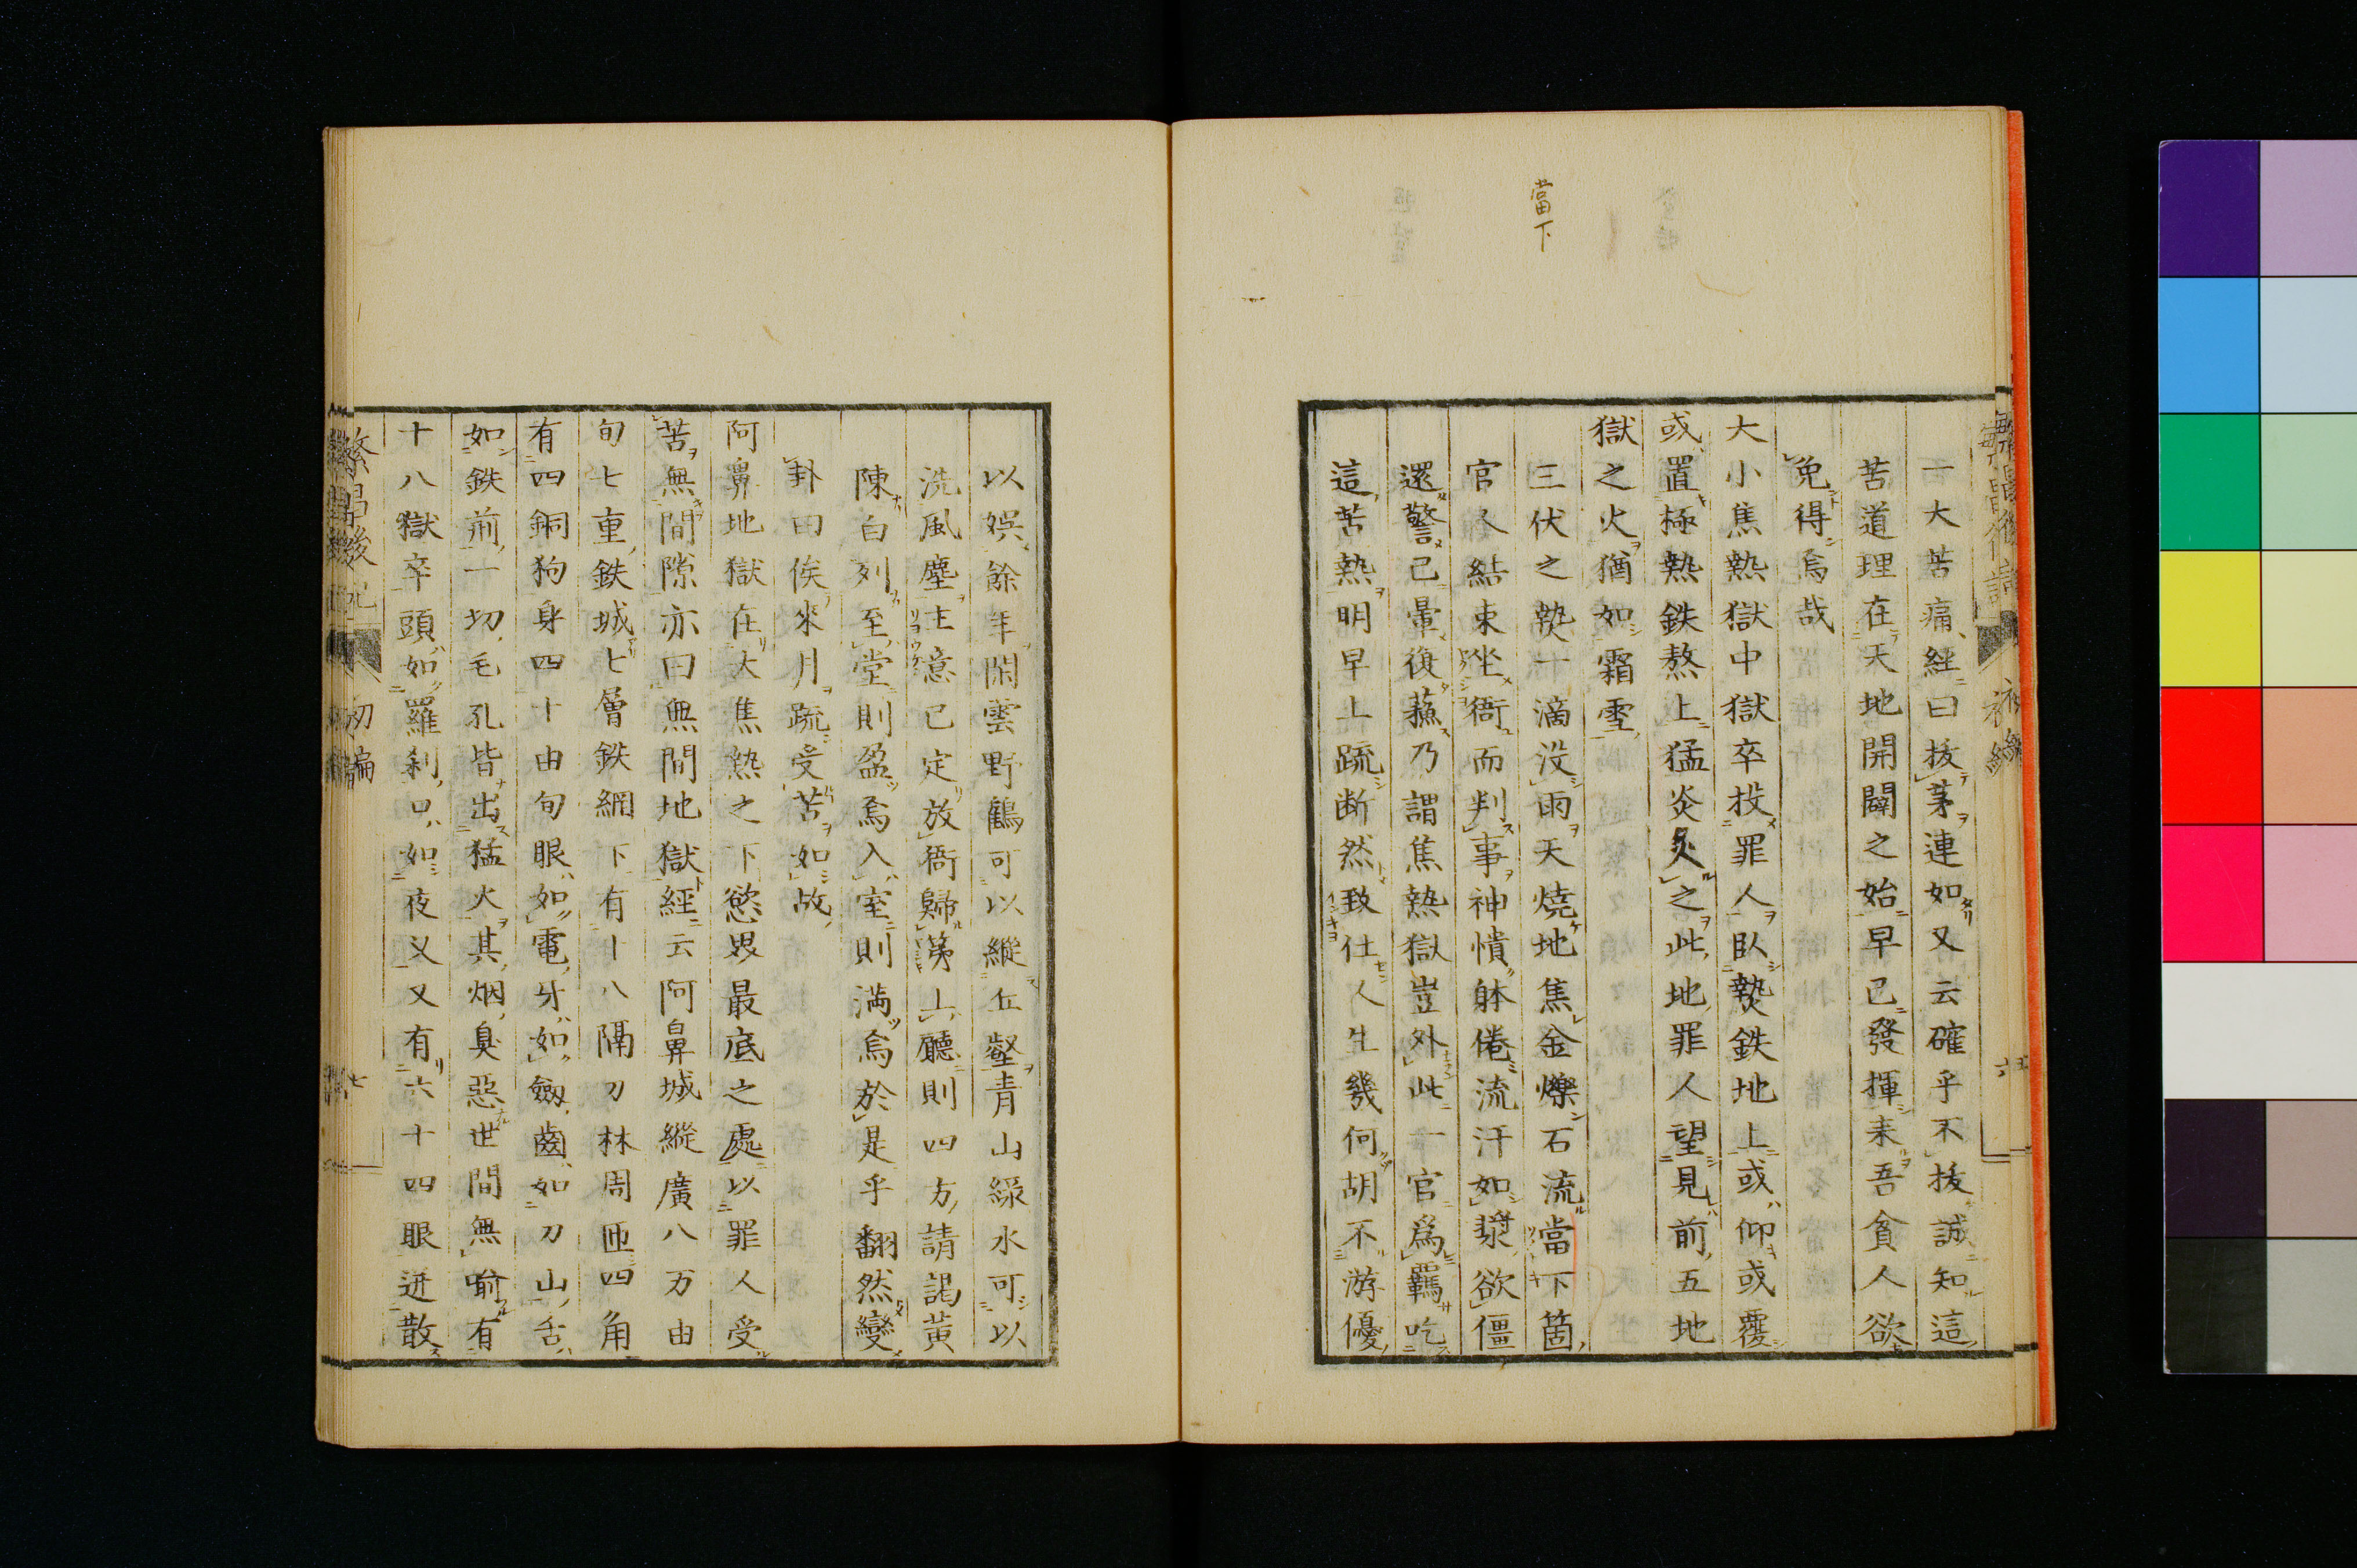 當下
一大苦痛経曰抜茅連如又云確乎不抜誠知這
苦道理在天地開闢之始早已發揮来吾貧人欲
免得焉哉
大小焦熱獄中獄卒投罪人臥熱鉄地上或仰或覆
或置極熱鉄熬上猛炎炙之此地罪人望見前五地
獄之火猶如霜雪
三伏之熱一滴没雨天燒地焦金爍石流當下箇
官人結束坐衙而判事神憒躰倦流汗如漿欲僵
還警已暈復蘓乃謂焦熱獄豈外此一官爲羈吃
這苦熱明早上疏断然致仕人生幾何胡不游優
以娯餘年閑雲野鶴可以縱丘壑青山緑水可以
洗風塵主意已定放衙歸第上廳則四方請謁黄
陳白列至堂則盈焉入室則満焉於是乎翻然變
卦曰俟来月疏受苦如故
阿鼻地獄在大焦熱之下慾界最底之處以罪人受
苦無間隙亦曰無間地獄経云阿鼻城縱廣八万由
旬七重鉄城七層鉄網下有十八隔刀林周匝四角
有四銅狗身四十由旬眼如電牙如劔齒如刀山舌
如鉄荊一切毛孔皆出猛火其烟臭惡世間無喻有
十八獄卒頭如羅刹口如夜叉又有六十四眼迸散
繁昌後記 初編 七